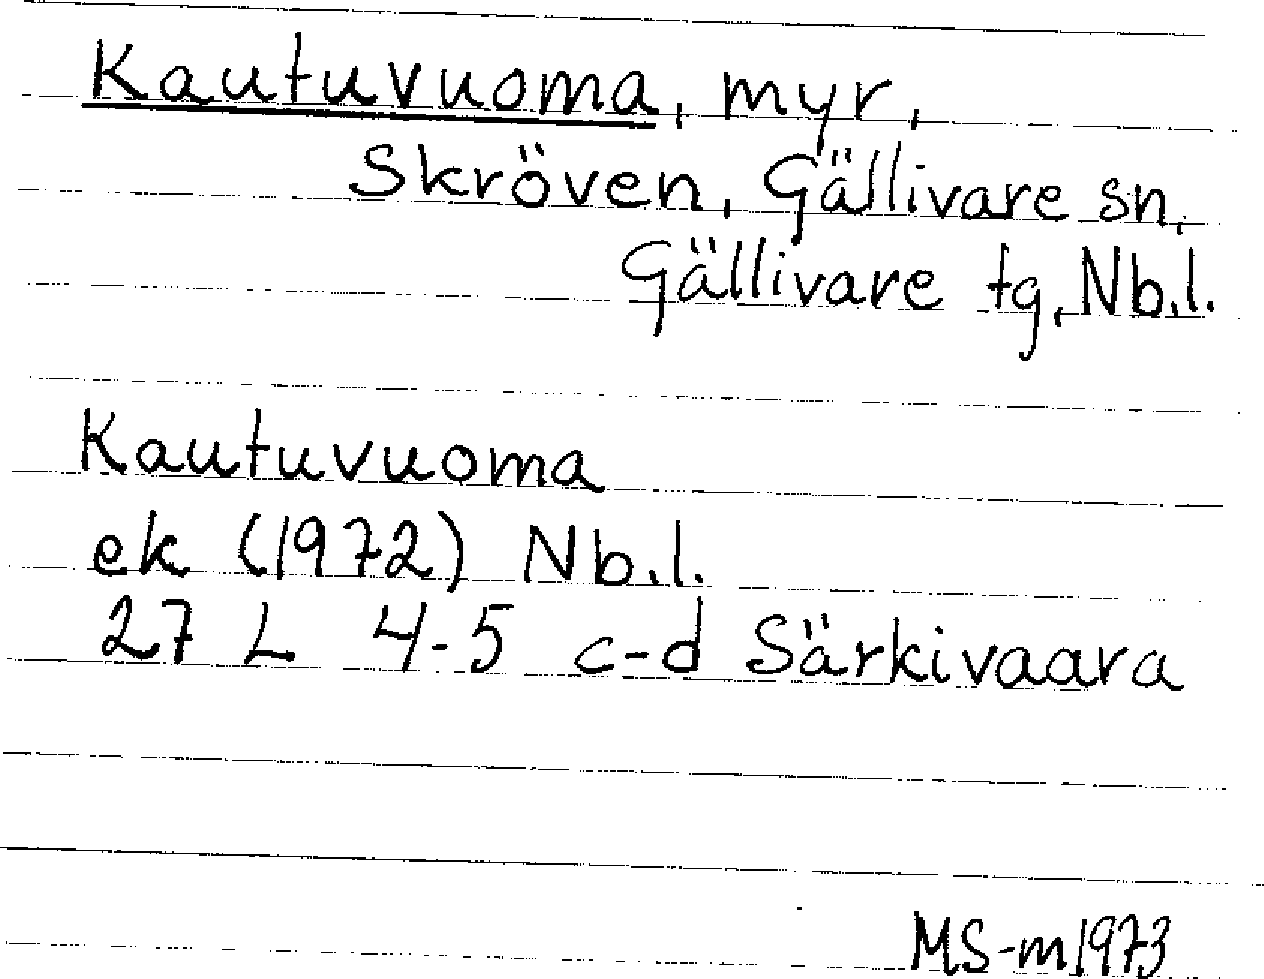 Kautuvuoma, myr,
Skröven, Gällivare sn,
Gällivare tg, Nb.l.
Kautuvuoma
ek (1972) Nb.l.
27 L 4-5 c-d Särkivaara
MS-m 1973